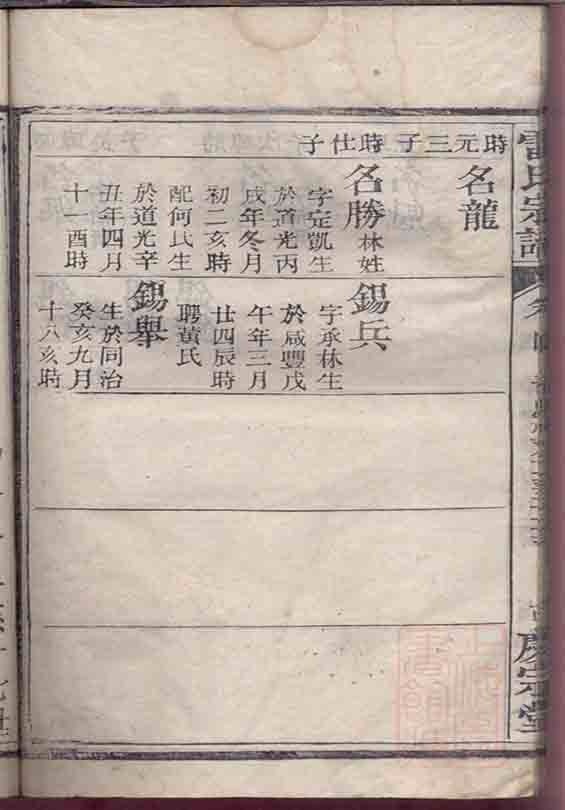 雷氏宗譜
時元三子
時仕子
名龍
名勝林姓
字定凱生
於道光丙
戌年冬月
初二亥時
配何氏生
於道光辛
丑年四月
十一酉時
錫兵
字承林生
於咸豐戊
午年三月
廿四辰時
聘黃氏
錫舉
生於同治
癸亥九月
十八亥時